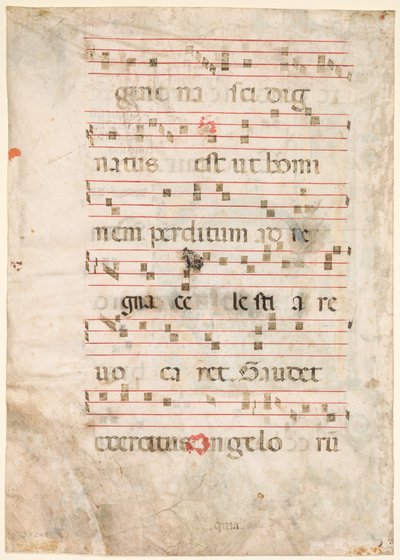 gine na sci dig
natus est ut homi
nem perditum ad re
gna ce le sti a re
uo ca ret. Gaudet
exercitus angelo rū
quia